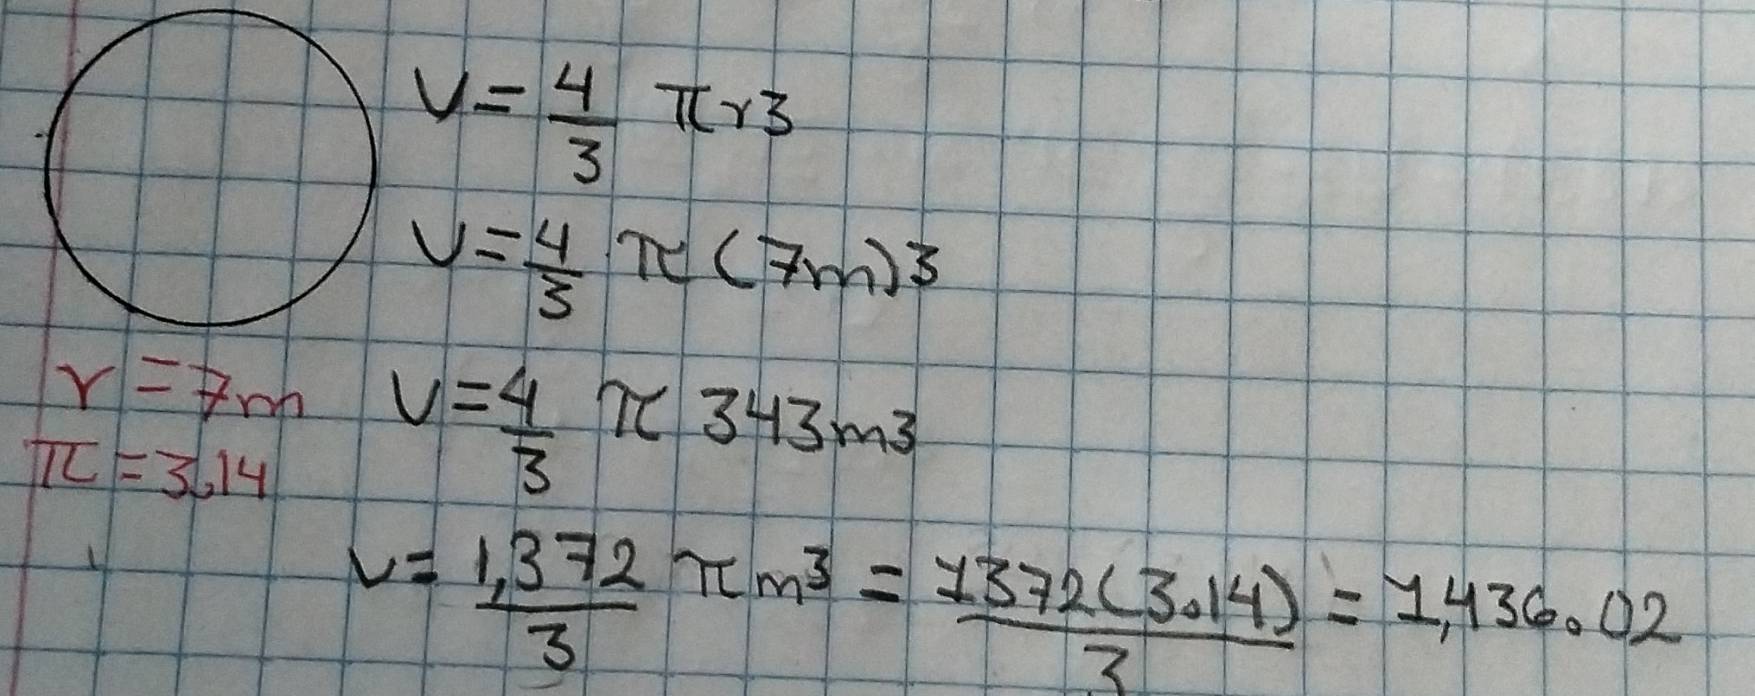 V = 4/3 π r3
V = 4/3 π (7m)3
r = 7m
π = 3.14
V = 4/3 π 343m3
V = 1,372/3 π m³ = 1372(3.14)/3 = 1,436.02